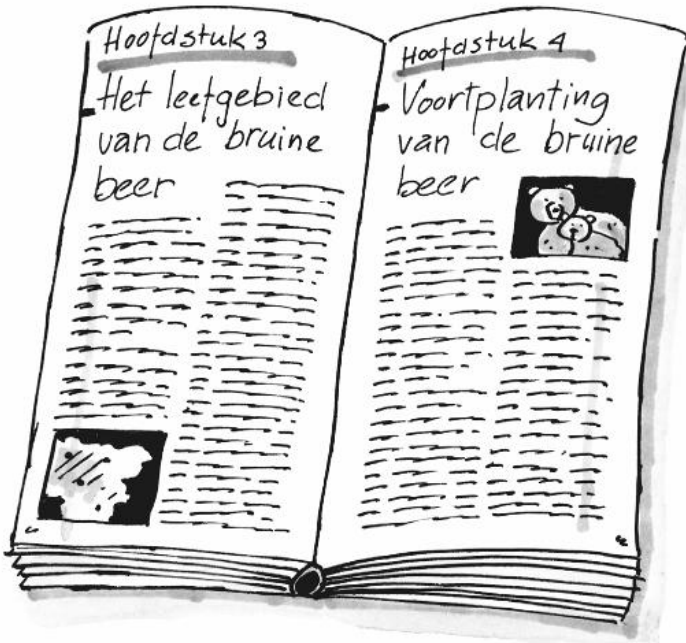 Hoofdstuk 3
Het leefgebied
van de bruine
beer
Hoofdstuk 4
Voortplanting
van de bruine
beer